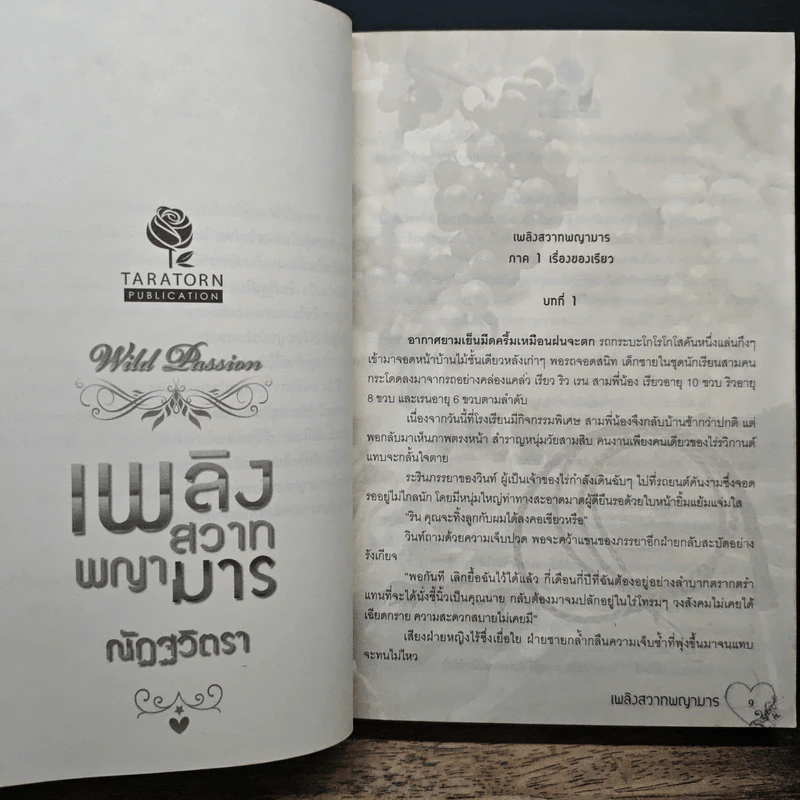 TARATORN
PUBLICATION
Wild Passion
เพลิง
สวาท
พญามาร
ณัฏฐวิตรา
เพลิงสวาทพญามาร
ภาค 1 เรื่องของเรียว
บทที่ 1
อากาศยามเย็นมืดครึ้มเหมือนฝนจะตก รถกระบะโกโรโกโสคันหนึ่งแล่นกึงๆ
เข้ามาจอดหน้าบ้านไม้ชั้นเดียวหลังเก่าๆ พอรถจอดสนิท เด็กชายในชุดนักเรียนสามคน
กระโดดลงมาจากรถอย่างคล่องแคล่ว เรียว ริว เรน สามพี่น้อง เรียวอายุ 10 ขวบ ริวอายุ
8 ขวบ และเรนอายุ 6 ขวบตามลำดับ
เนื่องจากวันนี้ที่โรงเรียนมีกิจกรรมพิเศษ สามพี่น้องจึงกลับบ้านช้ากว่าปกติ แต่
พอกลับมาเห็นภาพตรงหน้า สำราญหนุ่มวัยสามสิบ คนงานเพียงคนเดียวของไร่รวิกานต์
แทบจะกลั้นใจตาย
ระรินภรรยาของวินท์ ผู้เป็นเจ้าของไร่กำลังเดินฉับๆ ไปที่รถยนต์คันงามซึ่งจอด
รออยู่ไม่ไกลนัก โดยมีหนุ่มใหญ่ท่าทางสะอาดมาดผู้ดียืนรอด้วยใบหน้ายิ้มแย้มแจ่มใส
"ริน คุณจะทิ้งลูกกับผมได้ลงคอเชียวหรือ"
วินท์ถามด้วยความเจ็บปวด พอจะคว้าแขนของภรรยาอีกฝ่ายกลับสะบัดอย่าง
รังเกียจ
"พอกันที เลิกยื้อฉันไว้ได้แล้ว กี่เดือนกี่ปีที่ฉันต้องอยู่อย่างลำบากตรากตรำ
แทนที่จะได้นั่งชี้นิ้วเป็นคุณนาย กลับต้องมาจมปลักอยู่ในไร่โทรมๆ วงสังคมไม่เคยได้
เฉียดกราย ความสะดวกสบายไม่เคยมี"
เสียงฝ่ายหญิงไร้ซึ่งเยื่อใย ฝ่ายชายกล้ำกลืนความเจ็บช้ำที่พุ่งขึ้นมาจนแทบ
จะทนไม่ไหว
เพลิงสวาทพญามาร
9